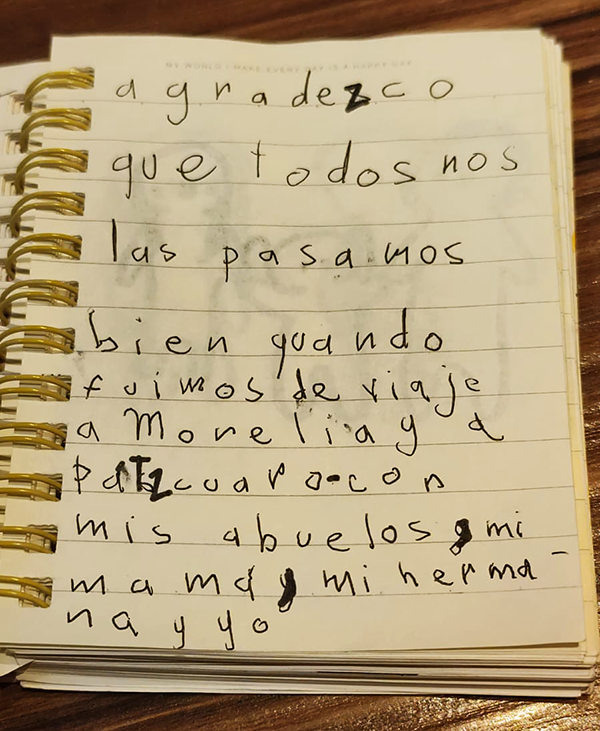 MY WORLD I MAKE EVERY DAY IS A HAPPY DAY
agradezco
que todos nos
las pasamos
bien quando
fuimos de viaje
a Morelia y a
patzcuaro-con
mis abuelos, mi
mama, mi herma-
na y yo